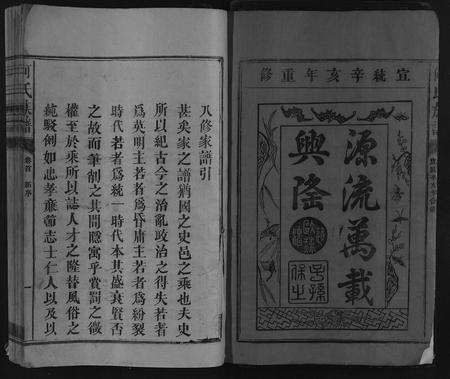 宣統辛亥年重修
源流萬載
興隆
子孫
保之
八修家譜引
甚矣家之譜猶國之史邑之乘也夫史
所以紀古今之治亂政治之得失若者
為英明主若者為昏庸主若者為紛裂
時代若者為統一時代本其盛衰賢否
之故而筆削之其間隱寓乎賞罰之微
權至於乘所以誌人才之隆替風俗之
純駁例如忠孝廉節志士仁人以及以
何氏族譜
卷首
新序
一